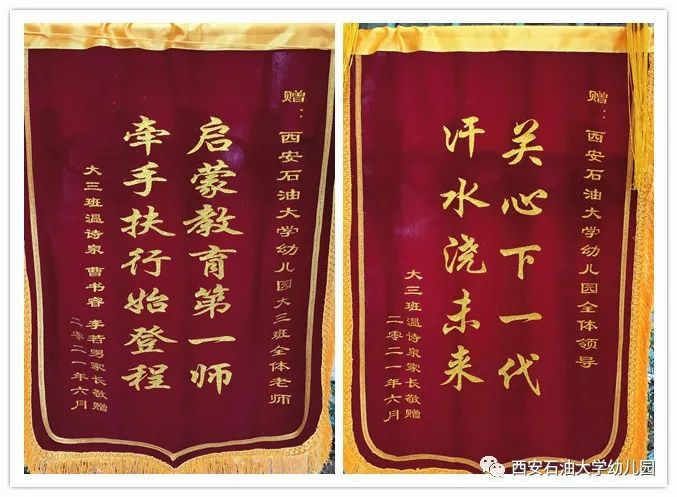 赠：西安石油大学幼儿园大三班全体老师
启蒙教育第一师
牵手扶行始登程
大三班温诗泉 曹书睿 李若男家长敬赠
二零二一年六月
赠：西安石油大学幼儿园全体领导
关心下一代
汗水浇未来
大三班温诗泉家长敬赠
二零二一年六月
西安石油大学幼儿园